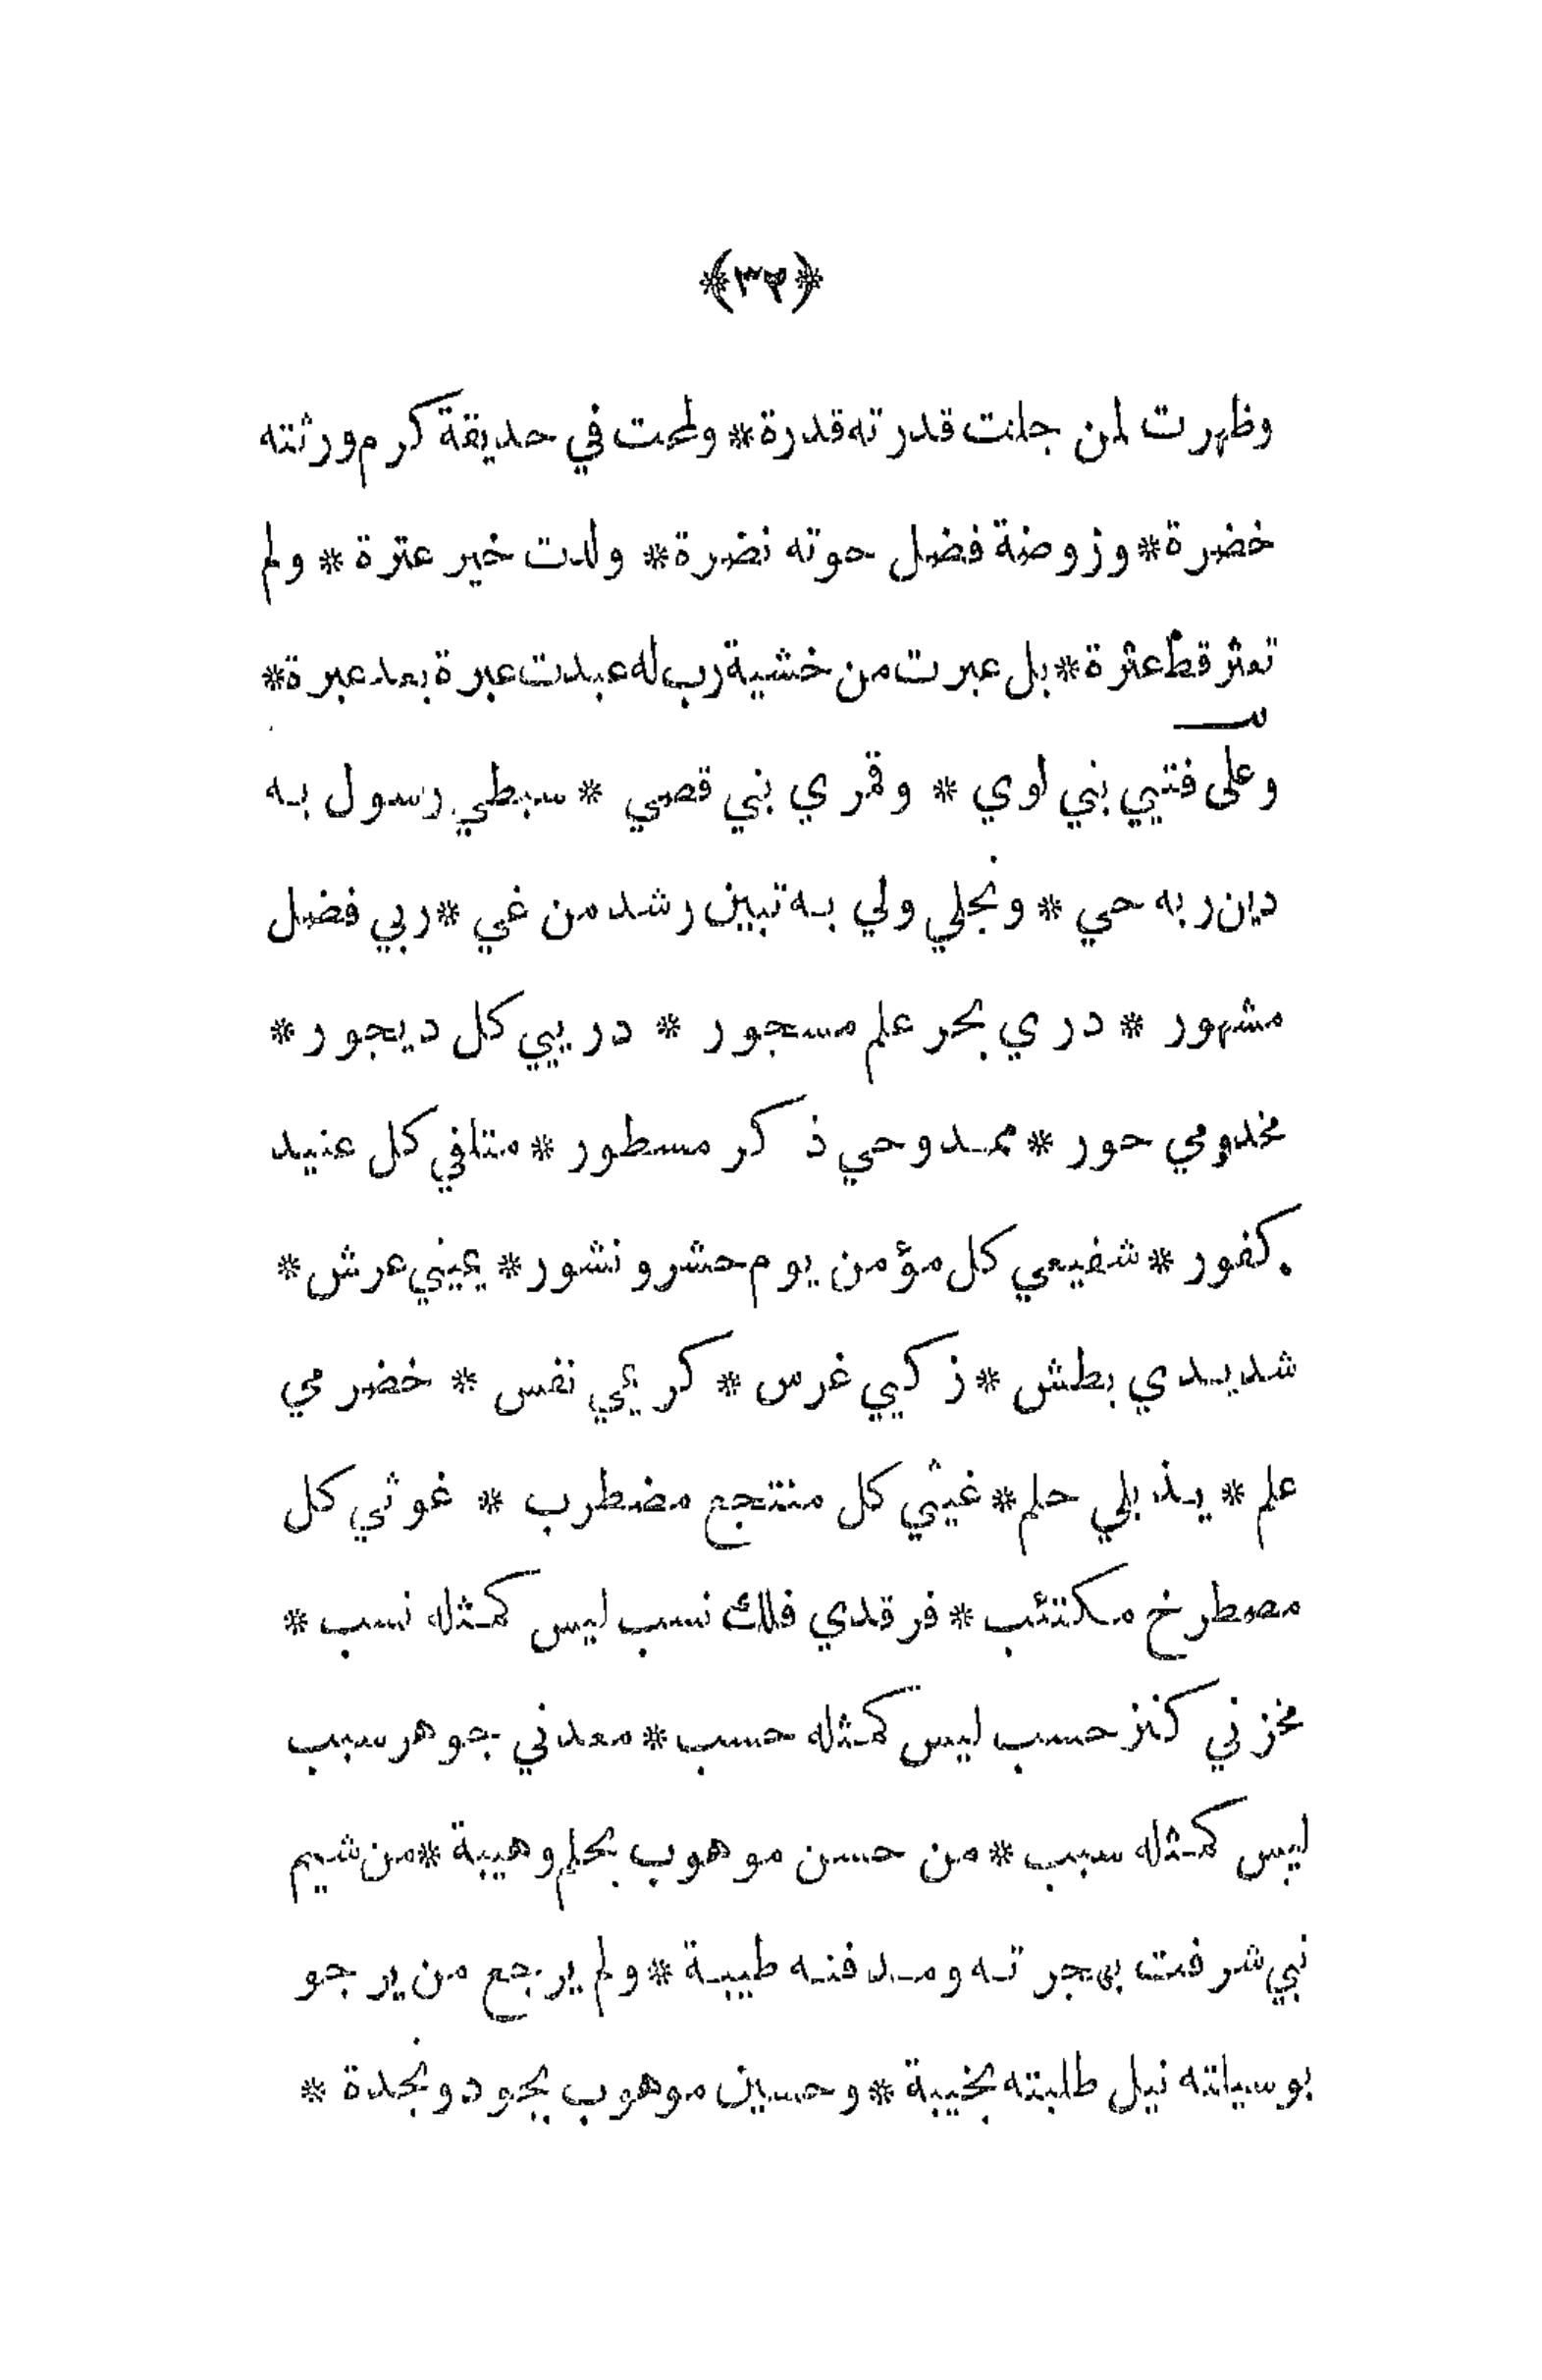 ﴿٣٣﴾
وظهرت لمن جلت قدرته قدرة * ولمحت في حديقة كرم ورثته
خضرة * وزوضة فضل حوته نضرة * ولدت خير عترة * ولم
تعثر قط عثرة * بل عبرت من خشية رب له عبدت عبرة بعد عبرة *
وعلى فتيي بني لوي * وقمري بني قصي * سبطي رسول به
دين ربه حي * ونجلي ولي به تبين رشد من غي * ربي فضل
مشهور * دري بحر علم مسجور * دريي كل ديجور *
مخدومي حور * ممدوحي ذكر مسطور * متلفي كل عنيد
كفور * شفيعي كل مؤمن يوم حشر ونشور * يميني عرش *
شديدي بطش * زكيي غرس * كريمي نفس * خضرمي
علم * يذبلي حلم * غيثي كل منتجع مضطرب * غوثي كل
مصطرخ مكتئب * فرقدي فلك نسب ليس كمثله نسب *
مخزني كنز حسب ليس كمثله حسب * معدني جوهر سبب
ليس كمثله سبب * من حسن موهوب بحلم وهيبة * من شيم
نبي شرفت بهجرته ومدفنه طيبة * ولم يرجع من يرجو
بوسيلته نيل طلبته بخيبة * وحسين موهوب بجود ونجدة *